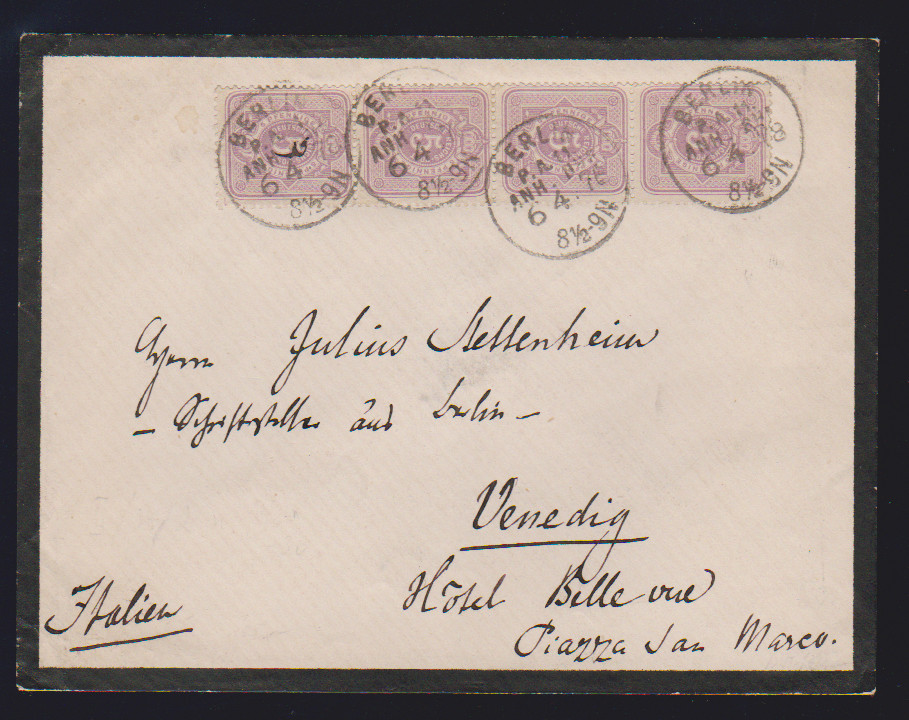 BERLIN P.A.11 ANH. 6 4 8½-9N
BERLIN P.A. ANH 6 4 8½-9N
BERLIN P.A.11 ANH 6 4 8½-9N
BERLIN P.A.11 ANH 6 4 78 8½-9N
Herrn Julius Stettenheim
– Schriftsteller aus Berlin –
Venedig
Italien
Hôtel Belle vue
Piazza San Marco.